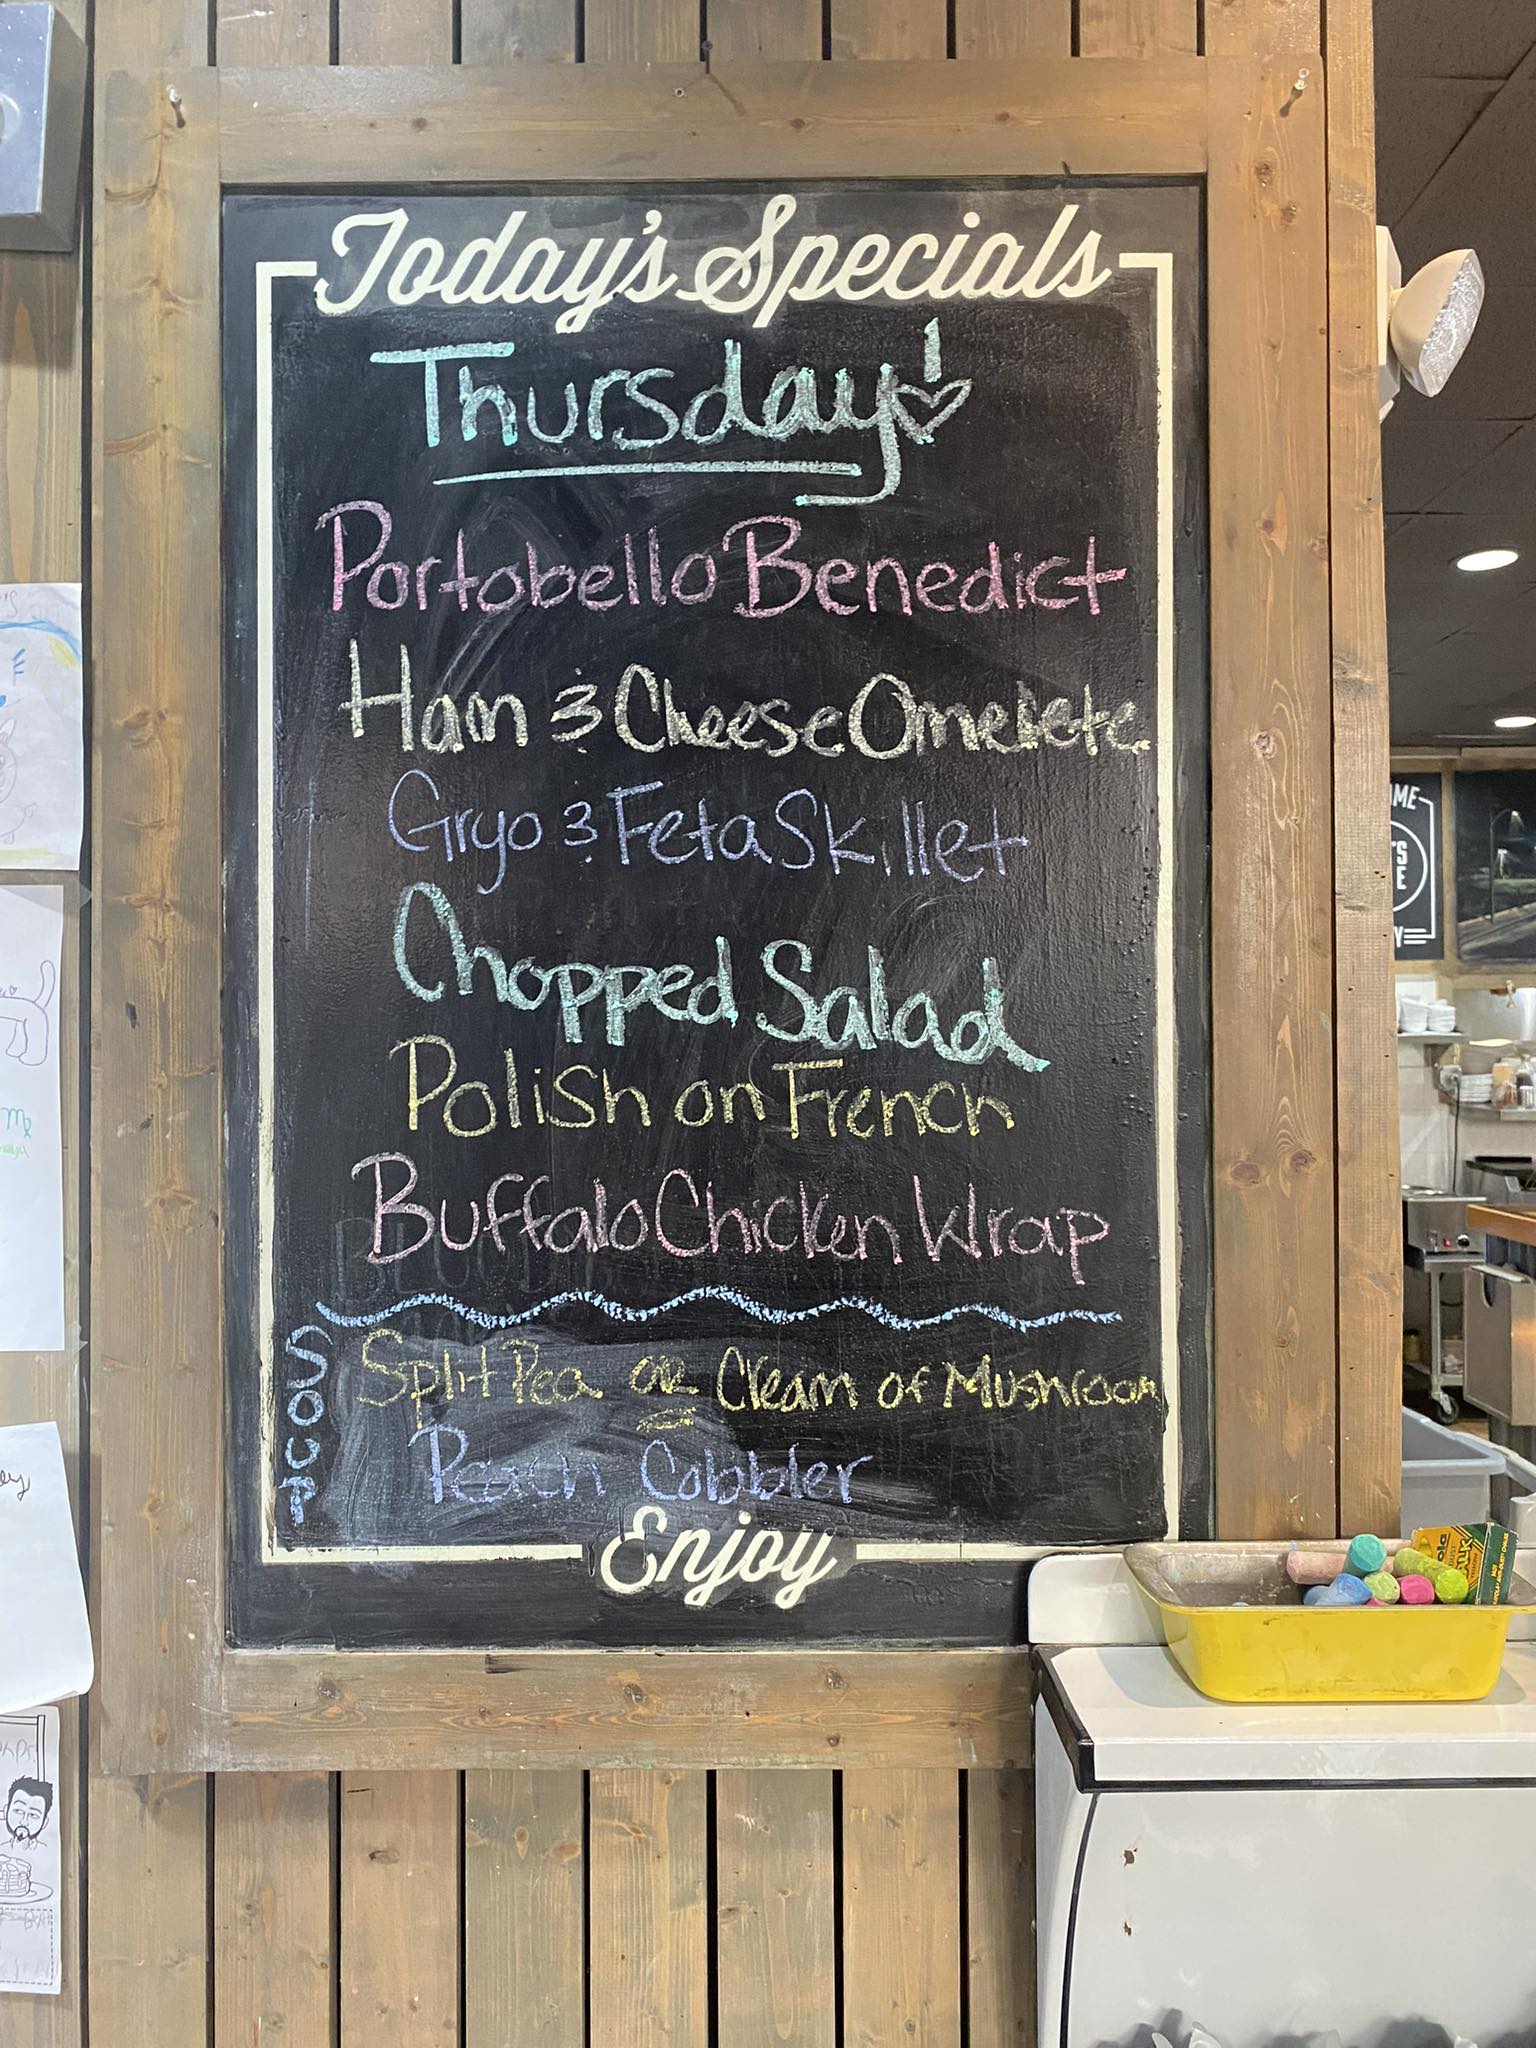 Today's Specials
Thursday!
Portobello Benedict
Ham & Cheese Omelete
Gryo & Feta Skillet
Chopped Salad
Polish on French
Buffalo Chicken Wrap
SOUP
Split Pea or Cream of Mushroom
Peach Cobbler
Enjoy